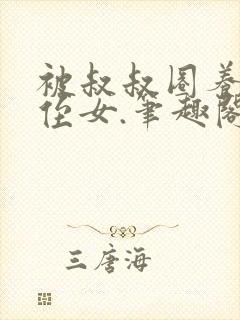 被叔叔圈养
侄女.笔趣阁
三唐海